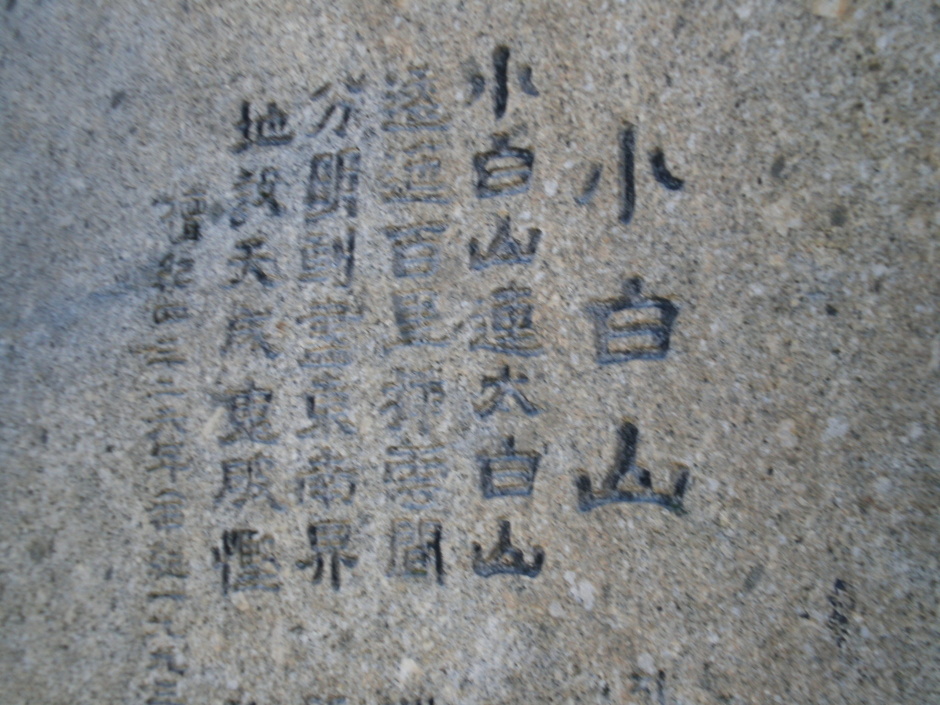 小白山
小白山連太白山
逶迤百里揷雲間
分明劃盡東南界
地設天成鬼破慳
檀紀四三二六年